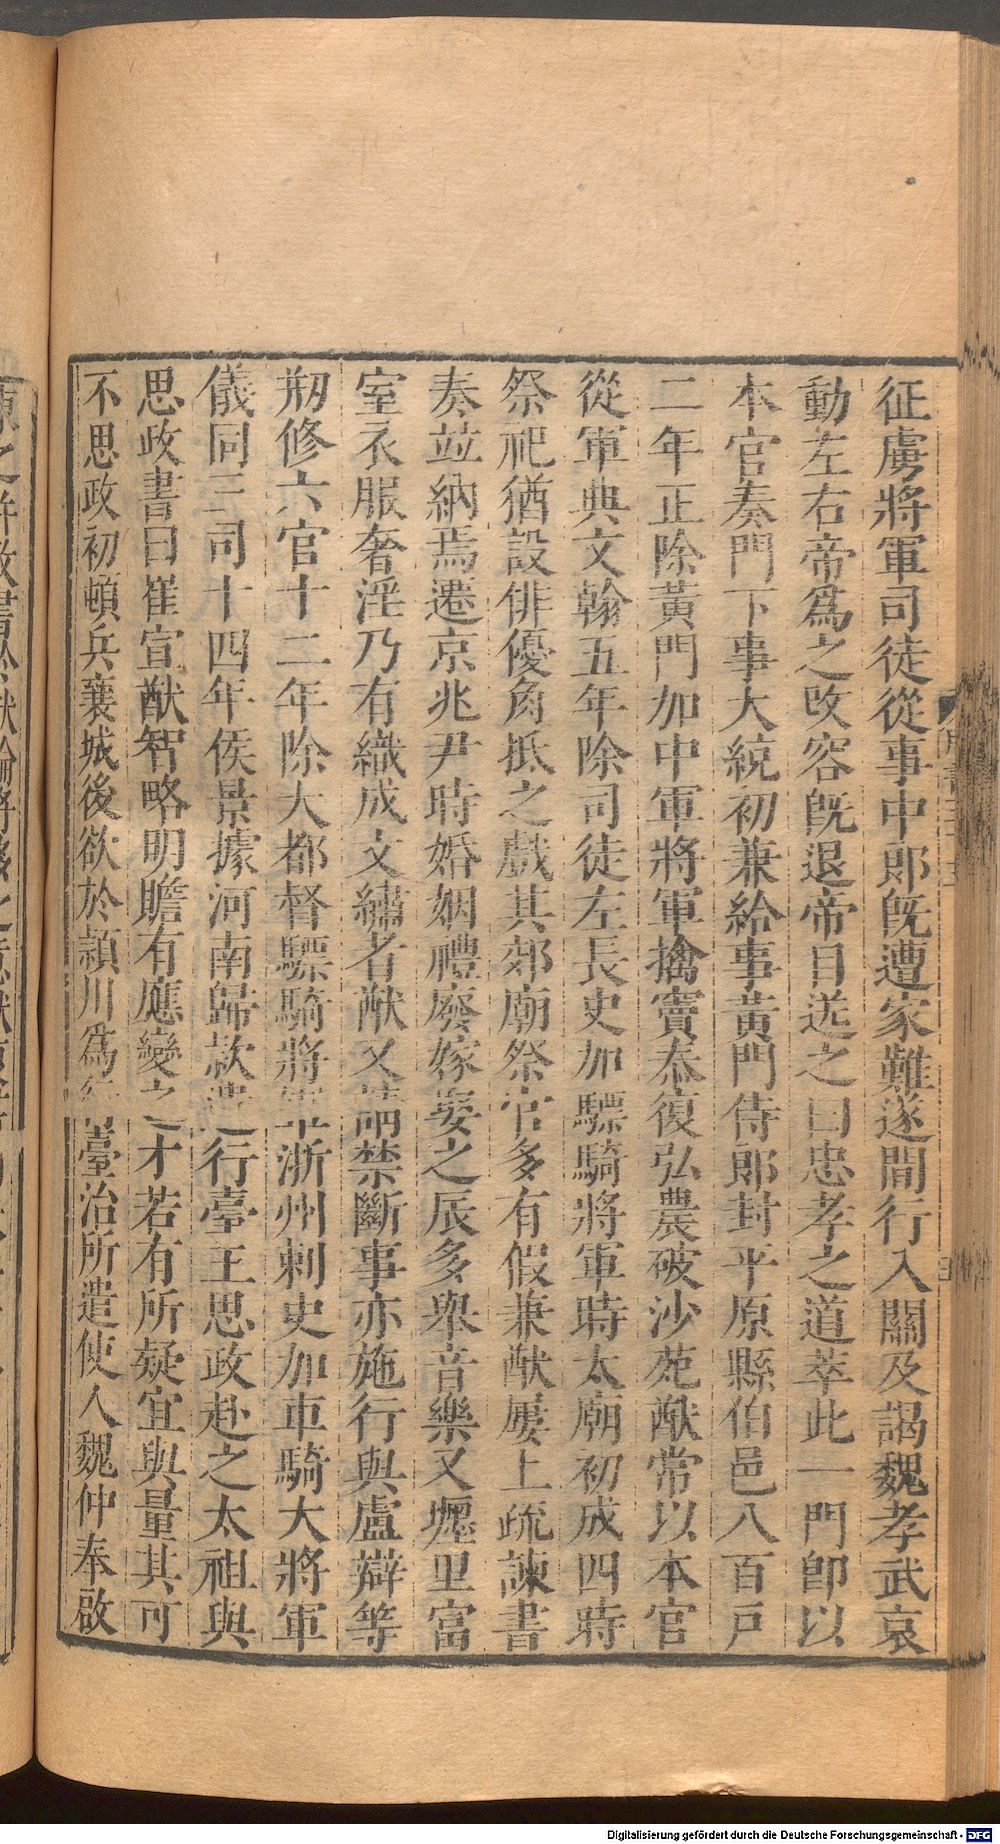 征虜將軍司徒從事中郎旣遭家難遂間行入關及謁魏孝武哀
動左右帝爲之改容旣退帝目送之曰忠孝之道萃此一門卽以
本官奏門下事大統初兼給事黃門侍郎封平原縣伯邑八百戸
二年正除黃門加中軍將軍擒竇泰復弘農破沙苑猷常以本官
從軍典文翰五年除司徒左長史加驃騎將軍時太廟初成四時
祭祀猶設俳優角抵之戲其郊廟祭官多有假兼猷屢上疏諫書
奏並納焉遷京兆尹時婚姻禮廢嫁娶之辰多舉音樂又㕓里富
室衣服奢淫乃有織成文繡者猷又請禁斷事亦施行與盧辯等
剏修六官十二年除大都督驃騎將軍淅州刺史加車騎大將軍
儀同三司十四年侯景據河南歸款遣行臺王思政赴之太祖與
思政書曰崔宣猷智略明贍有應變之才若有所疑宜與量其可
不思政初頓兵襄城後欲於頴川爲行臺治所遣使人魏仲奉啟
Digitalisierung gefördert durch die Deutsche Forschungsgemeinschaft - DFG